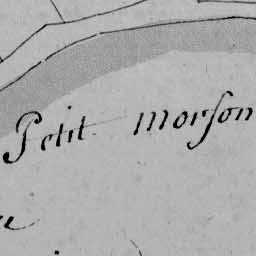 Petit morson